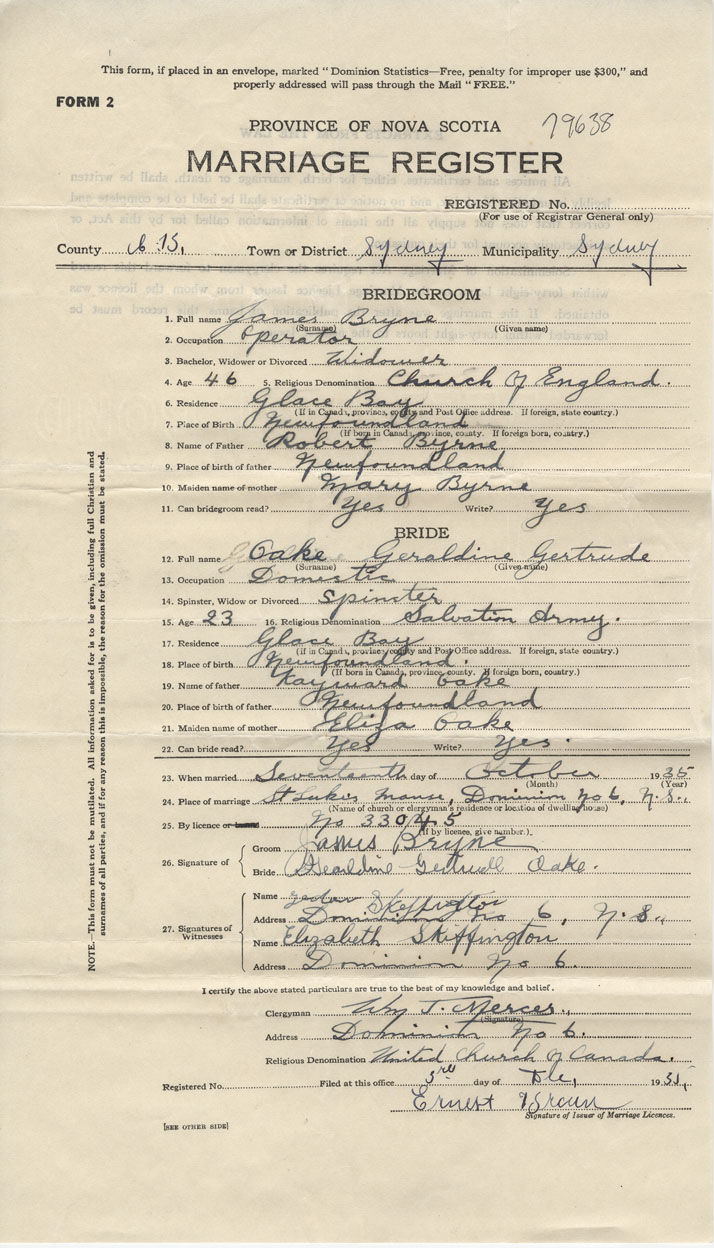 This form, if placed in an envelope, marked "Dominion Statistics—Free, penalty for improper use $300," and
properly addressed will pass through the Mail "FREE."
FORM 2
PROVINCE OF NOVA SCOTIA 79638
MARRIAGE REGISTER
REGISTERED No.
(For use of Registrar General only)
County C.B., Town or District Sydney Municipality Sydney
BRIDEGROOM
1. Full name James Bryne
(Surname) (Given name)
2. Occupation Operator
3. Bachelor, Widower or Divorced Widower
4. Age 46 5. Religious Denomination Church of England.
6. Residence Glace Bay
(If in Canada, province, county and Post Office address. If foreign, state country.)
7. Place of Birth Newfoundland
(If born in Canada, province, county. If foreign born, country.)
8. Name of Father Robert Byrne
9. Place of birth of father Newfoundland
10. Maiden name of mother Mary Byrne
11. Can bridegroom read? Yes Write? Yes
BRIDE
12. Full name Oake Geraldine Gertrude
(Surname) (Given name)
13. Occupation Domestic
14. Spinster, Widow or Divorced Spinster
15. Age 23 16. Religious Denomination Salvation Army.
17. Residence Glace Bay
(If in Canada, province, county and Post Office address. If foreign, state country.)
18. Place of birth Newfoundland.
(If born in Canada, province, county. If foreign born, country.)
19. Name of father Kayward Oake
20. Place of birth of father Newfoundland
21. Maiden name of mother Eliza Oake
22. Can bride read? Yes Write? Yes.
23. When married Seventeenth day of October 1935
(Month) (Year)
24. Place of marriage St Luke's Manse, Dominion No 6, N.S.,
(Name of church or clergyman's residence or location of dwelling house)
25. By licence or No 33045
(If by licence, give number.)
26. Signature of
Groom James Bryne
Bride Geraldine Gertrude Oake.
27. Signatures of Witnesses
Name Skeffington
Address Dominion No 6, N.S.,
Name Elizabeth Skiffington
Address Dominion No 6.
I certify the above stated particulars are true to the best of my knowledge and belief.
Clergyman Wm J. Mercer.,
(Signature)
Address Dominion No 6.
Religious Denomination United Church of Canada.
Registered No. Filed at this office 3rd day of 1935,
Ernest Brown
Signature of Issuer of Marriage Licences.
[SEE OTHER SIDE]
NOTE.—This form must not be mutilated. All information asked for is to be given, including full Christian and
surnames of all parties, and if for any reason this is impossible, the reason for the omission must be stated.